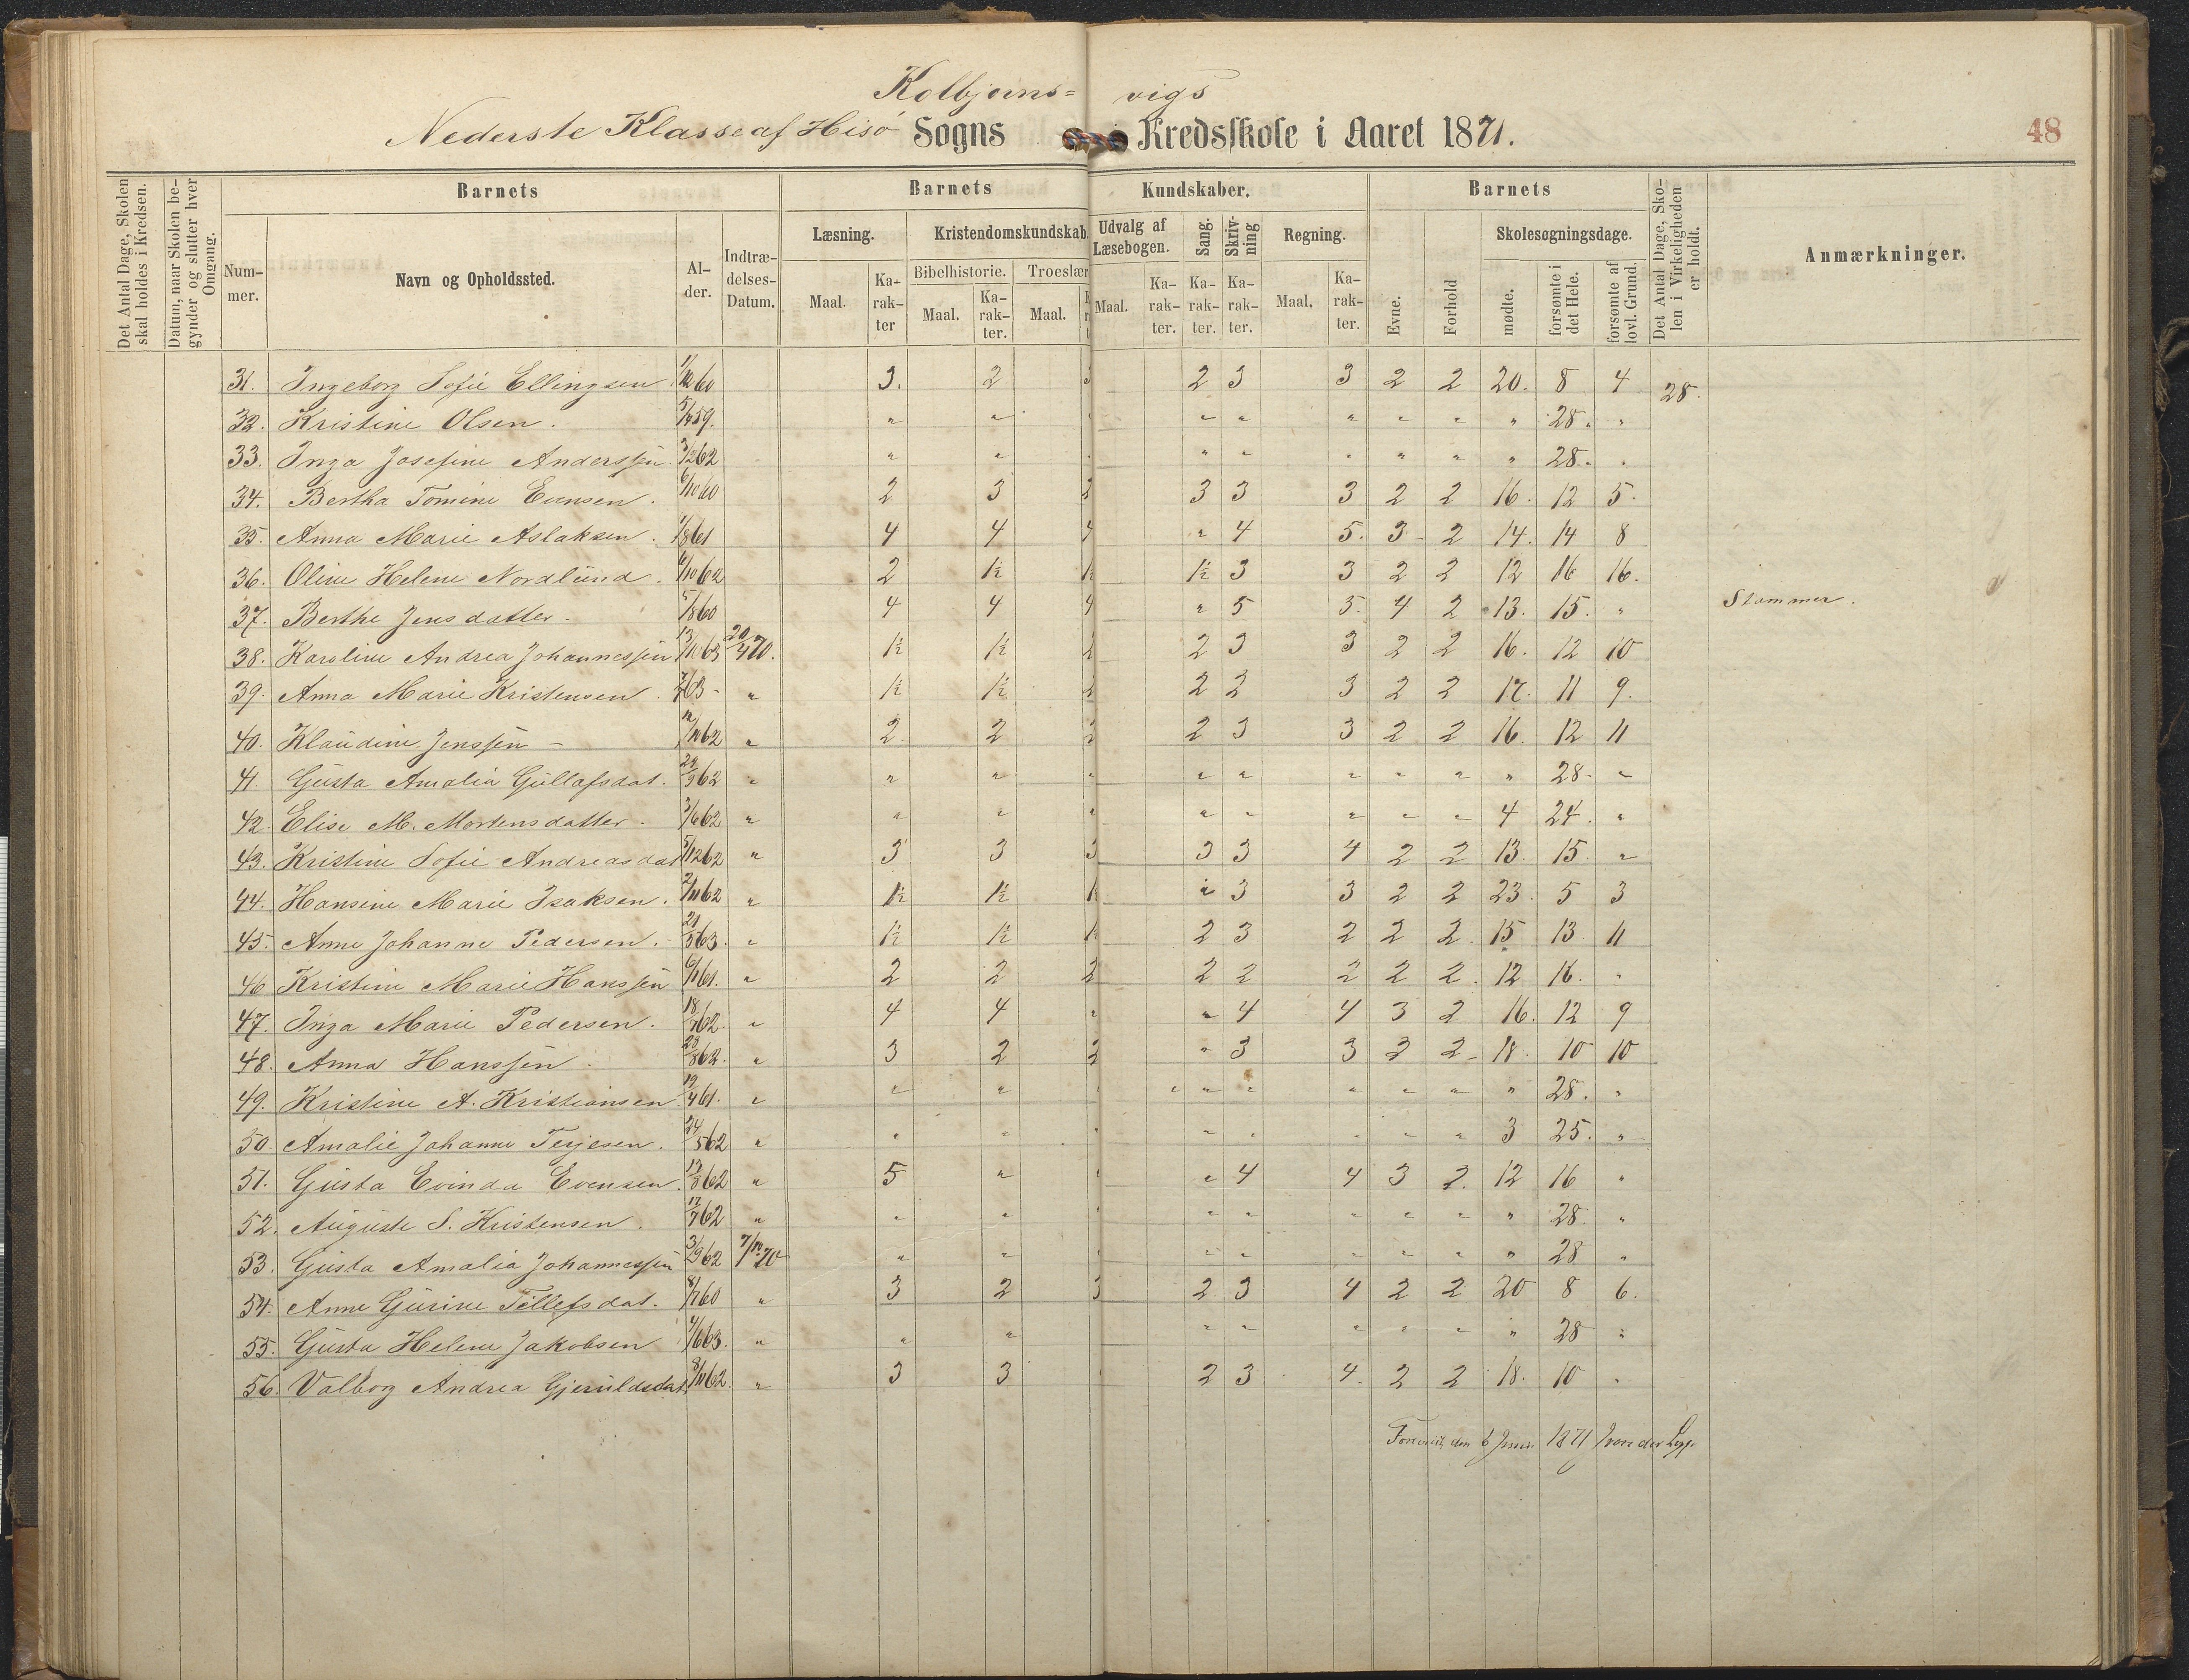 Kolbjørns= vigs
Nederste Klasse af Hisø Sogns Kredsskole i Aaret 1871.
48
Det Antal Dage, Skolen skal holdes i Kredsen.
Datum, naar Skolen begynder og slutter hver Omgang.
Barnets Barnets Kundskaber. Barnets
Det Antal Dage, Skolen i Virkeligheden er holdt.
Anmærkninger.
Nummer. Navn og Opholdssted. Alder. Indtrædelses-Datum.
Læsning. Kristendomskundskab. Udvalg af Læsebogen. Sang. Skrivning Regning. Evne. Forhold Skolesøgningsdage.
Bibelhistorie. Troeslær
Maal. Karakter Maal. Karakter. Maal. Maal. Karakter. Karakter. Karakter. Maal. Karakter. mødte. forsømte i det Hele. forsømte af lovl. Grund.
31. Ingeborg Sofie Ellingsen 1/12 60 3. 2 3 2 3 3 2 2 20. 8 4 28.
32. Kristine Olsen. 59. " " " " " " " " " 28. "
33. Inga Josefine Anderssen. 3/12 62 " " " " " " " " " 28. "
34. Bertha Tomine Evensen. 6/10 60 2 3 2 3 3 3 2 2 16. 12 5.
35. Anna Marie Aslaksen. 1/8 61 4 4 4 " 4 5. 3 2 14. 14 8
36. Oline Helene Nordlund. 6/10 62 2 1½ 1½ 1½ 3 3 2 2 12 16 16.
37. Berthe Jensdatter. 5/8 60 4 4 4 " 5 5. 4 2 13. 15. " Stammer.
38. Karoline Andrea Johannessen 13/10 63 20/4 70. 1½ 1½ 2 2 3 3 2 2 16. 12 10
39. Anna Marie Kristensen. 63 " 1½ 1½ 2 2 2 3 2 2 17. 11 9.
40. Klaudine Jenssen 62 " 2. 2 2 2 3 3 2 2 16. 12 11
41. Gusta Amalia Gullafsdat. 24/9 62 " " " " " " " " " " 28. "
42. Elise M. Mortensdatter. 3/6 62 " " " " " " " " " 4 24. "
43. Kristine Sofie Andreasdat 5/12 62 " 3 3 3 3 3 4 2 2 13. 15. "
44. Hansine Marie Isaksen. 2/11 62 " 1½ 1½ 1½ " 3 3 2 2 23. 5 3
45. Anne Johanne Pedersen. 21/3 63. " 1½ 1½ 1½ 2 3 2 2 2. 15 13 11
46 Kristine Marie Hanssen 6/1 61. " 2 2 2 2 2 2 2 2. 12 16. "
47. Inga Marie Pedersen. 62. " 4 4 " " 4 4 3 2 16. 12 9
48. Anna Hanssen. 23/8 62. " 3 2 2 " 3 3 3 2 18. 10 10
49. Kristine A. Kristiansen 19/4 61. " " " " " " " " " " 28. "
50. Amalie Johanne Terjesen. 24/5 62 " " " " " " " " " 3 25. "
51. Gusta Evinda Evensen. 13/8 62 " 5 " " " 4 4 3 2. 12 16 "
52. Auguste S. Kristensen. 17/7 62 " " " " " " " " " " 28. "
53. Gusta Amalia Johannessen 3/9 62 7/10 70 " " " " " " " " " 28 "
54. Anne Gurine Tellefsdat. 8/7 60 " 3 2 3 2 3 4 2 2 20 8 6.
55. Gusta Helene Jakobsen 4/6 63. " " " " " " " " " 28 "
56. Valborg Andrea Gjeruldsdat. 8/11 62. " 3 3 " 2 3 4. 2 2 18. 10 "
den 6 1871